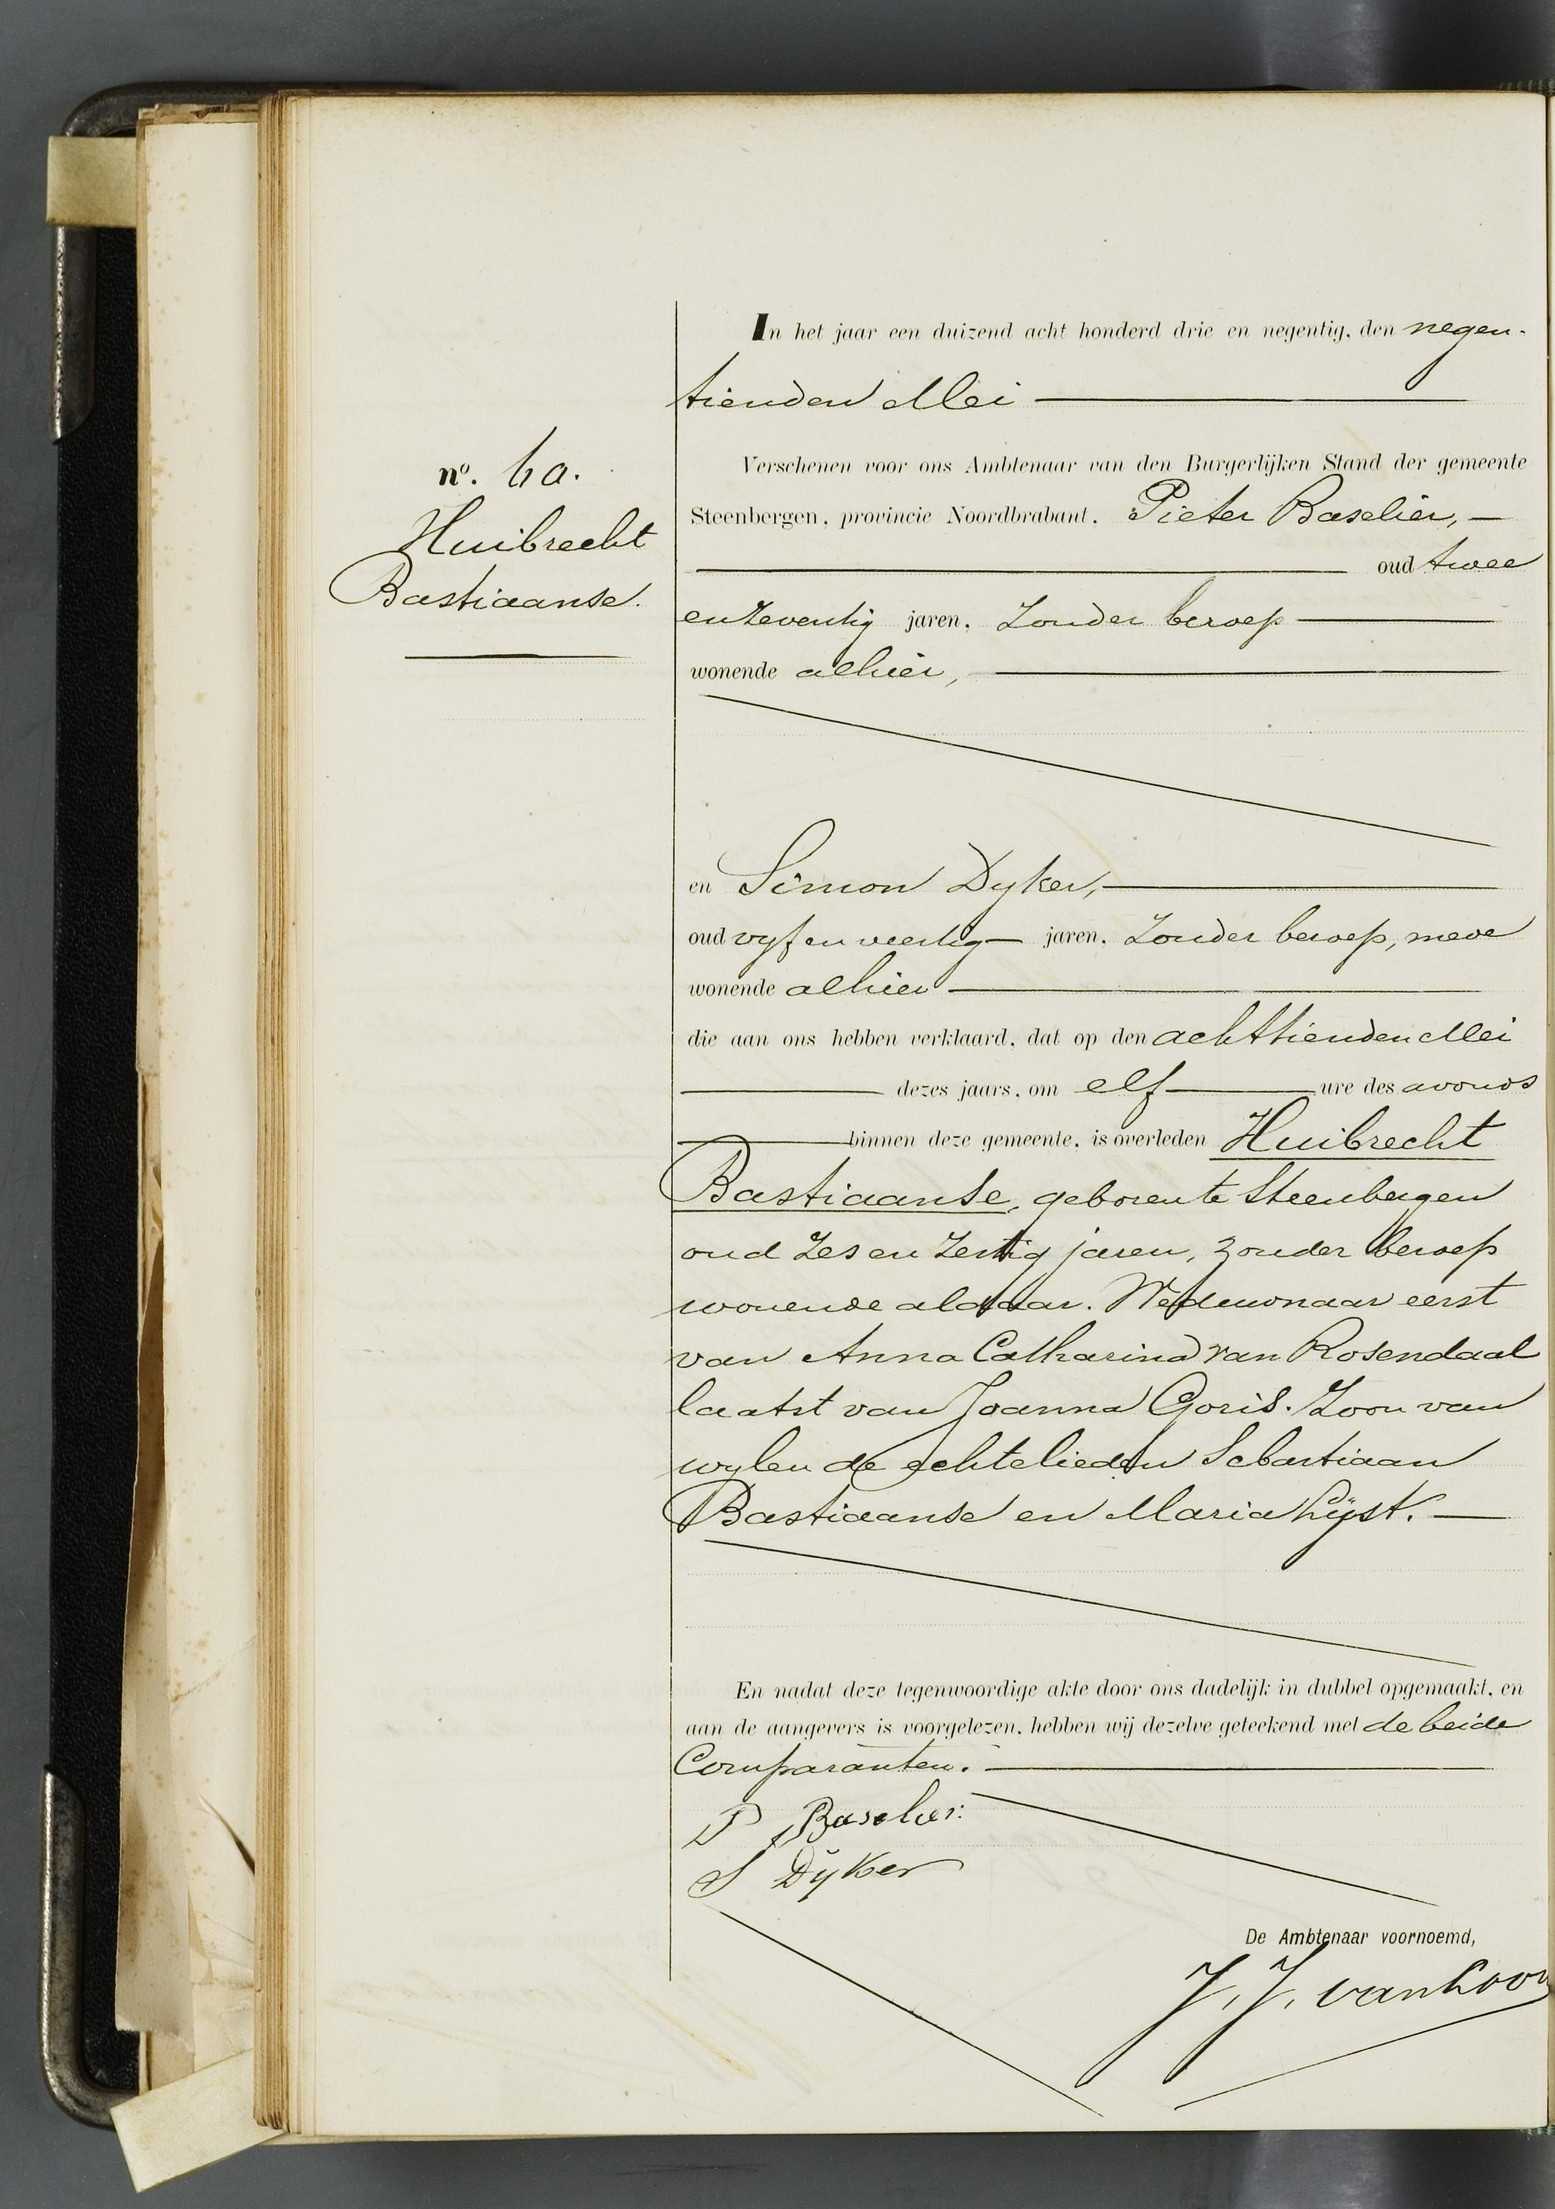 In het jaar een duizend acht honderd drie en negentig, den negen-
tienden Mei
no. 60.
Huibrecht
Bastiaanse.
Verschenen voor ons Ambtenaar van den Burgerlijken Stand der gemeente
Steenbergen, provincie Noordbrabant, Pieter Baselier,
oud twee
en zeventig jaren, zonder beroep
wonende alhier,
en Simon Dyker,
oud vyf en veertig jaren, zonder beroep, mede
wonende alhier
die aan ons hebben verklaard, dat op den achttienden Mei
dezes jaars, om elf ure des avonds
binnen deze gemeente, is overleden Huibrecht
Bastiaanse, geboren te Steenbergen
oud zes en zestig jaren, zonder beroep
wonende aldaar. Weduwnaar eerst
van Anna Catharina van Rosendaal
laatst van Joanna Goris. Zoon van
wylen de echtelieden Sebastiaan
Bastiaanse en Maria Lijst.
En nadat deze tegenwoordige akte door ons dadelijk in dubbel opgemaakt, en
aan de aangevers is voorgelezen, hebben wij dezelve geteekend met de beide
Comparanten.
P Baselier
S Dÿker
De Ambtenaar voornoemd,
J. J. van Loon